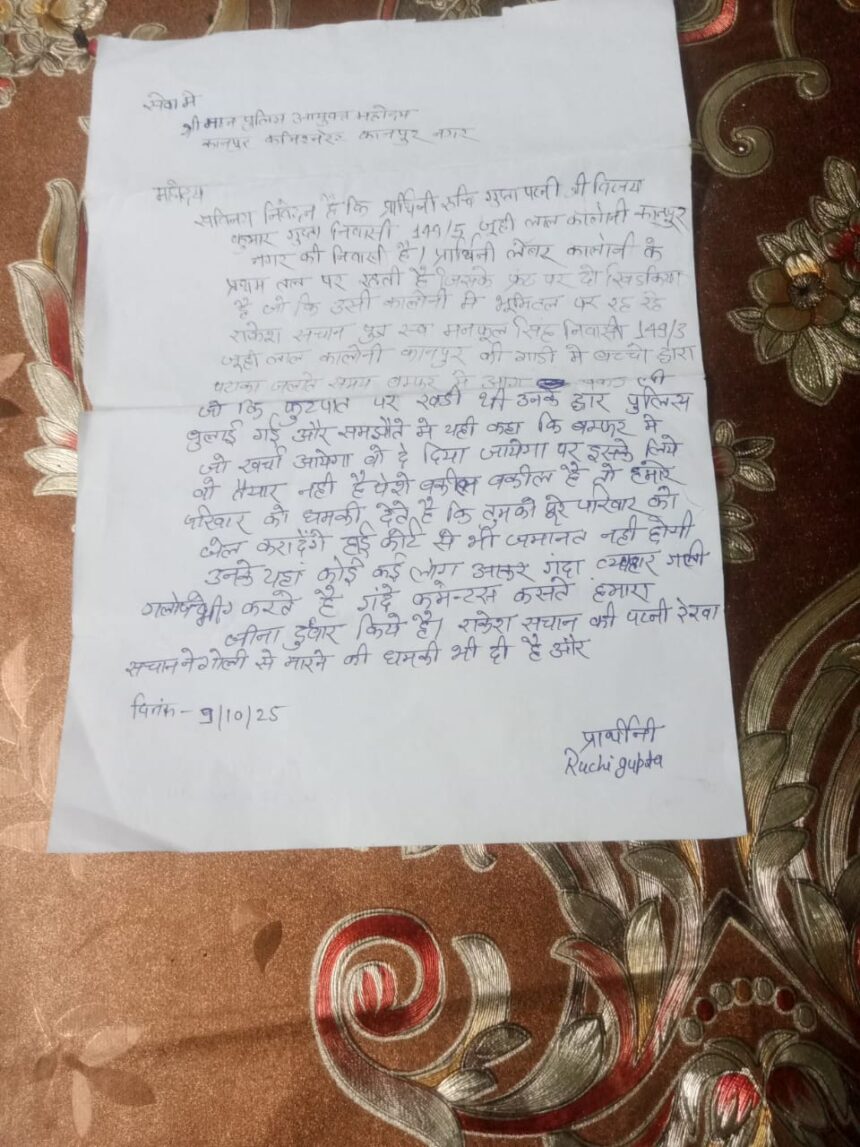 सेवा मे
श्रीमान पुलिस आयुक्त महोदय
कानपुर कमिश्नरेट कानपुर नगर
महोदय
सविनय निवेदन है कि प्रार्थिनी रूचि गुप्ता पत्नी श्री विजय
कुमार गुप्ता निवासी 149/5 जूही लाल कालोनी कानपुर
नगर की निवासी है। प्रार्थिनी लेबर कालोनी के
प्रथम तल पर रहती है जिसके फ्रंट पर दो खिडकिया
है जो कि उसी कालोनी मे भूमितल पर रह रहे
राकेश सचान पुत्र स्व मनफूल सिंह निवासी 149/3
जूही लाल कालोनी कानपुर की गाडी मे बच्चो द्वारा
पटाका जलाते समय बम्फर मे आग
जो कि फुटपात पर खडी थी उनके द्वार पुलिस
बुलाई गई और समझौते मे यही कहा कि बम्फर मे
जो खर्चा आयेगा वो दे दिया जायेगा पर इसके लिये
वो तैयार नही है पेशे वकील है वो हमारे
परिवार को धमकी देते है कि तुमको पूरे परिवार को
जेल करा देंगे हाई कोर्ट से भी जमानत नही होगी
उनके यहां कोई कई लोग आकर गंदा व्यवहार गाली
गलोज भी करते है गंदे कमेन्टस कसते हमारा
जीना दुंवार किये है। राकेश सचान की पत्नी रेखा
सचान ने गोली से मारने की धमकी भी दी है और
दिनांक - 9/10/25
प्रार्थीनी
Ruchi gupta